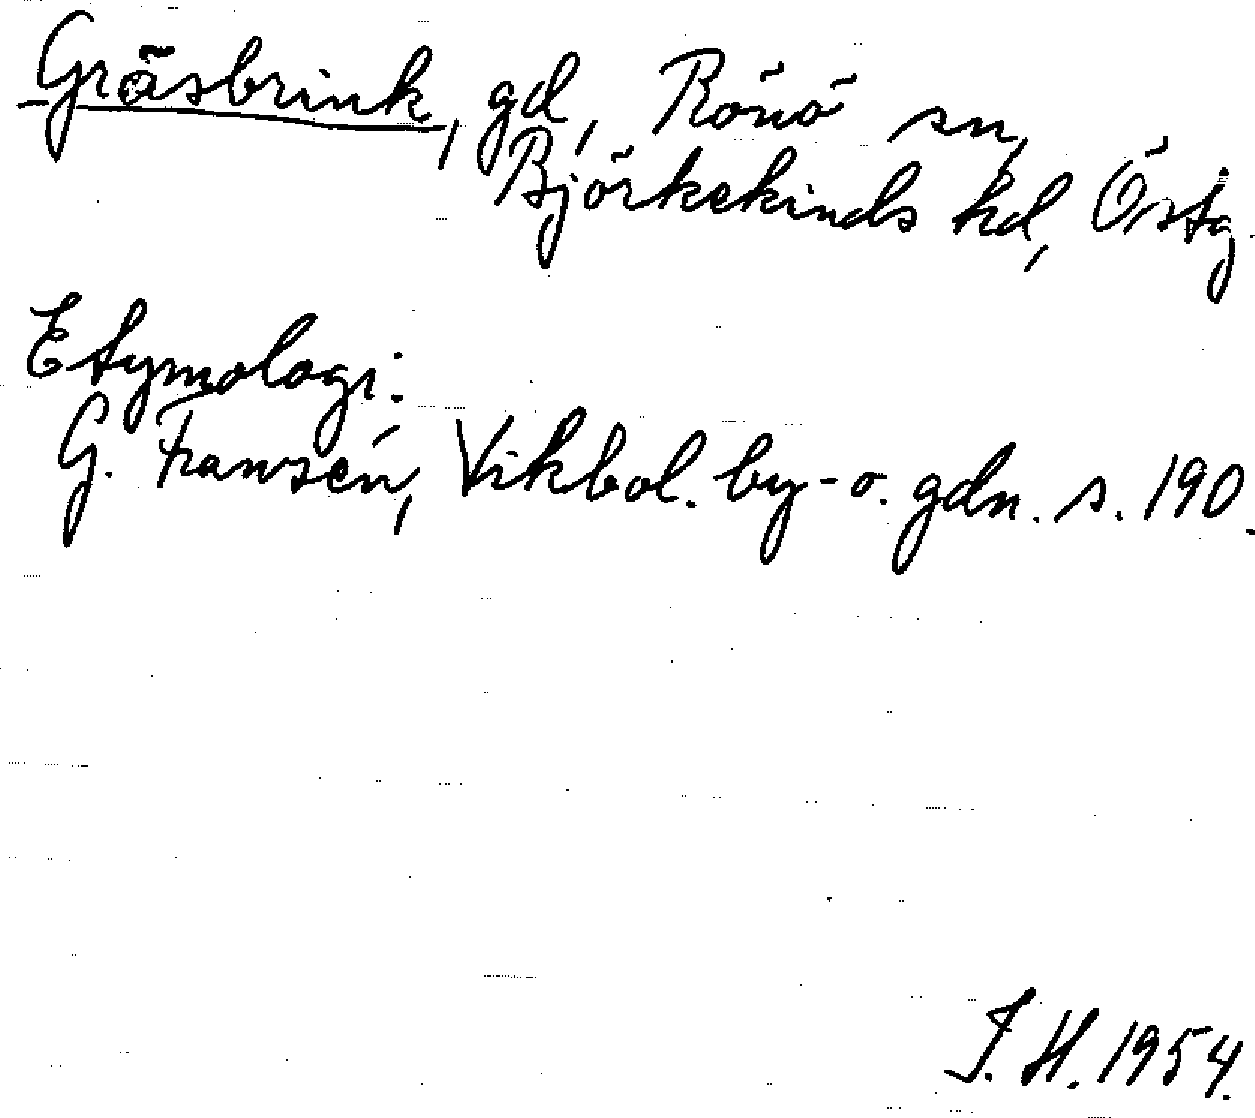 Gräsbrink, gd, Rönö sn,
Björkekinds hd, Östg.
Etymologi:
G. Fransén, Vikbol. by- o. gdn. s. 190.
I. H. 1954.